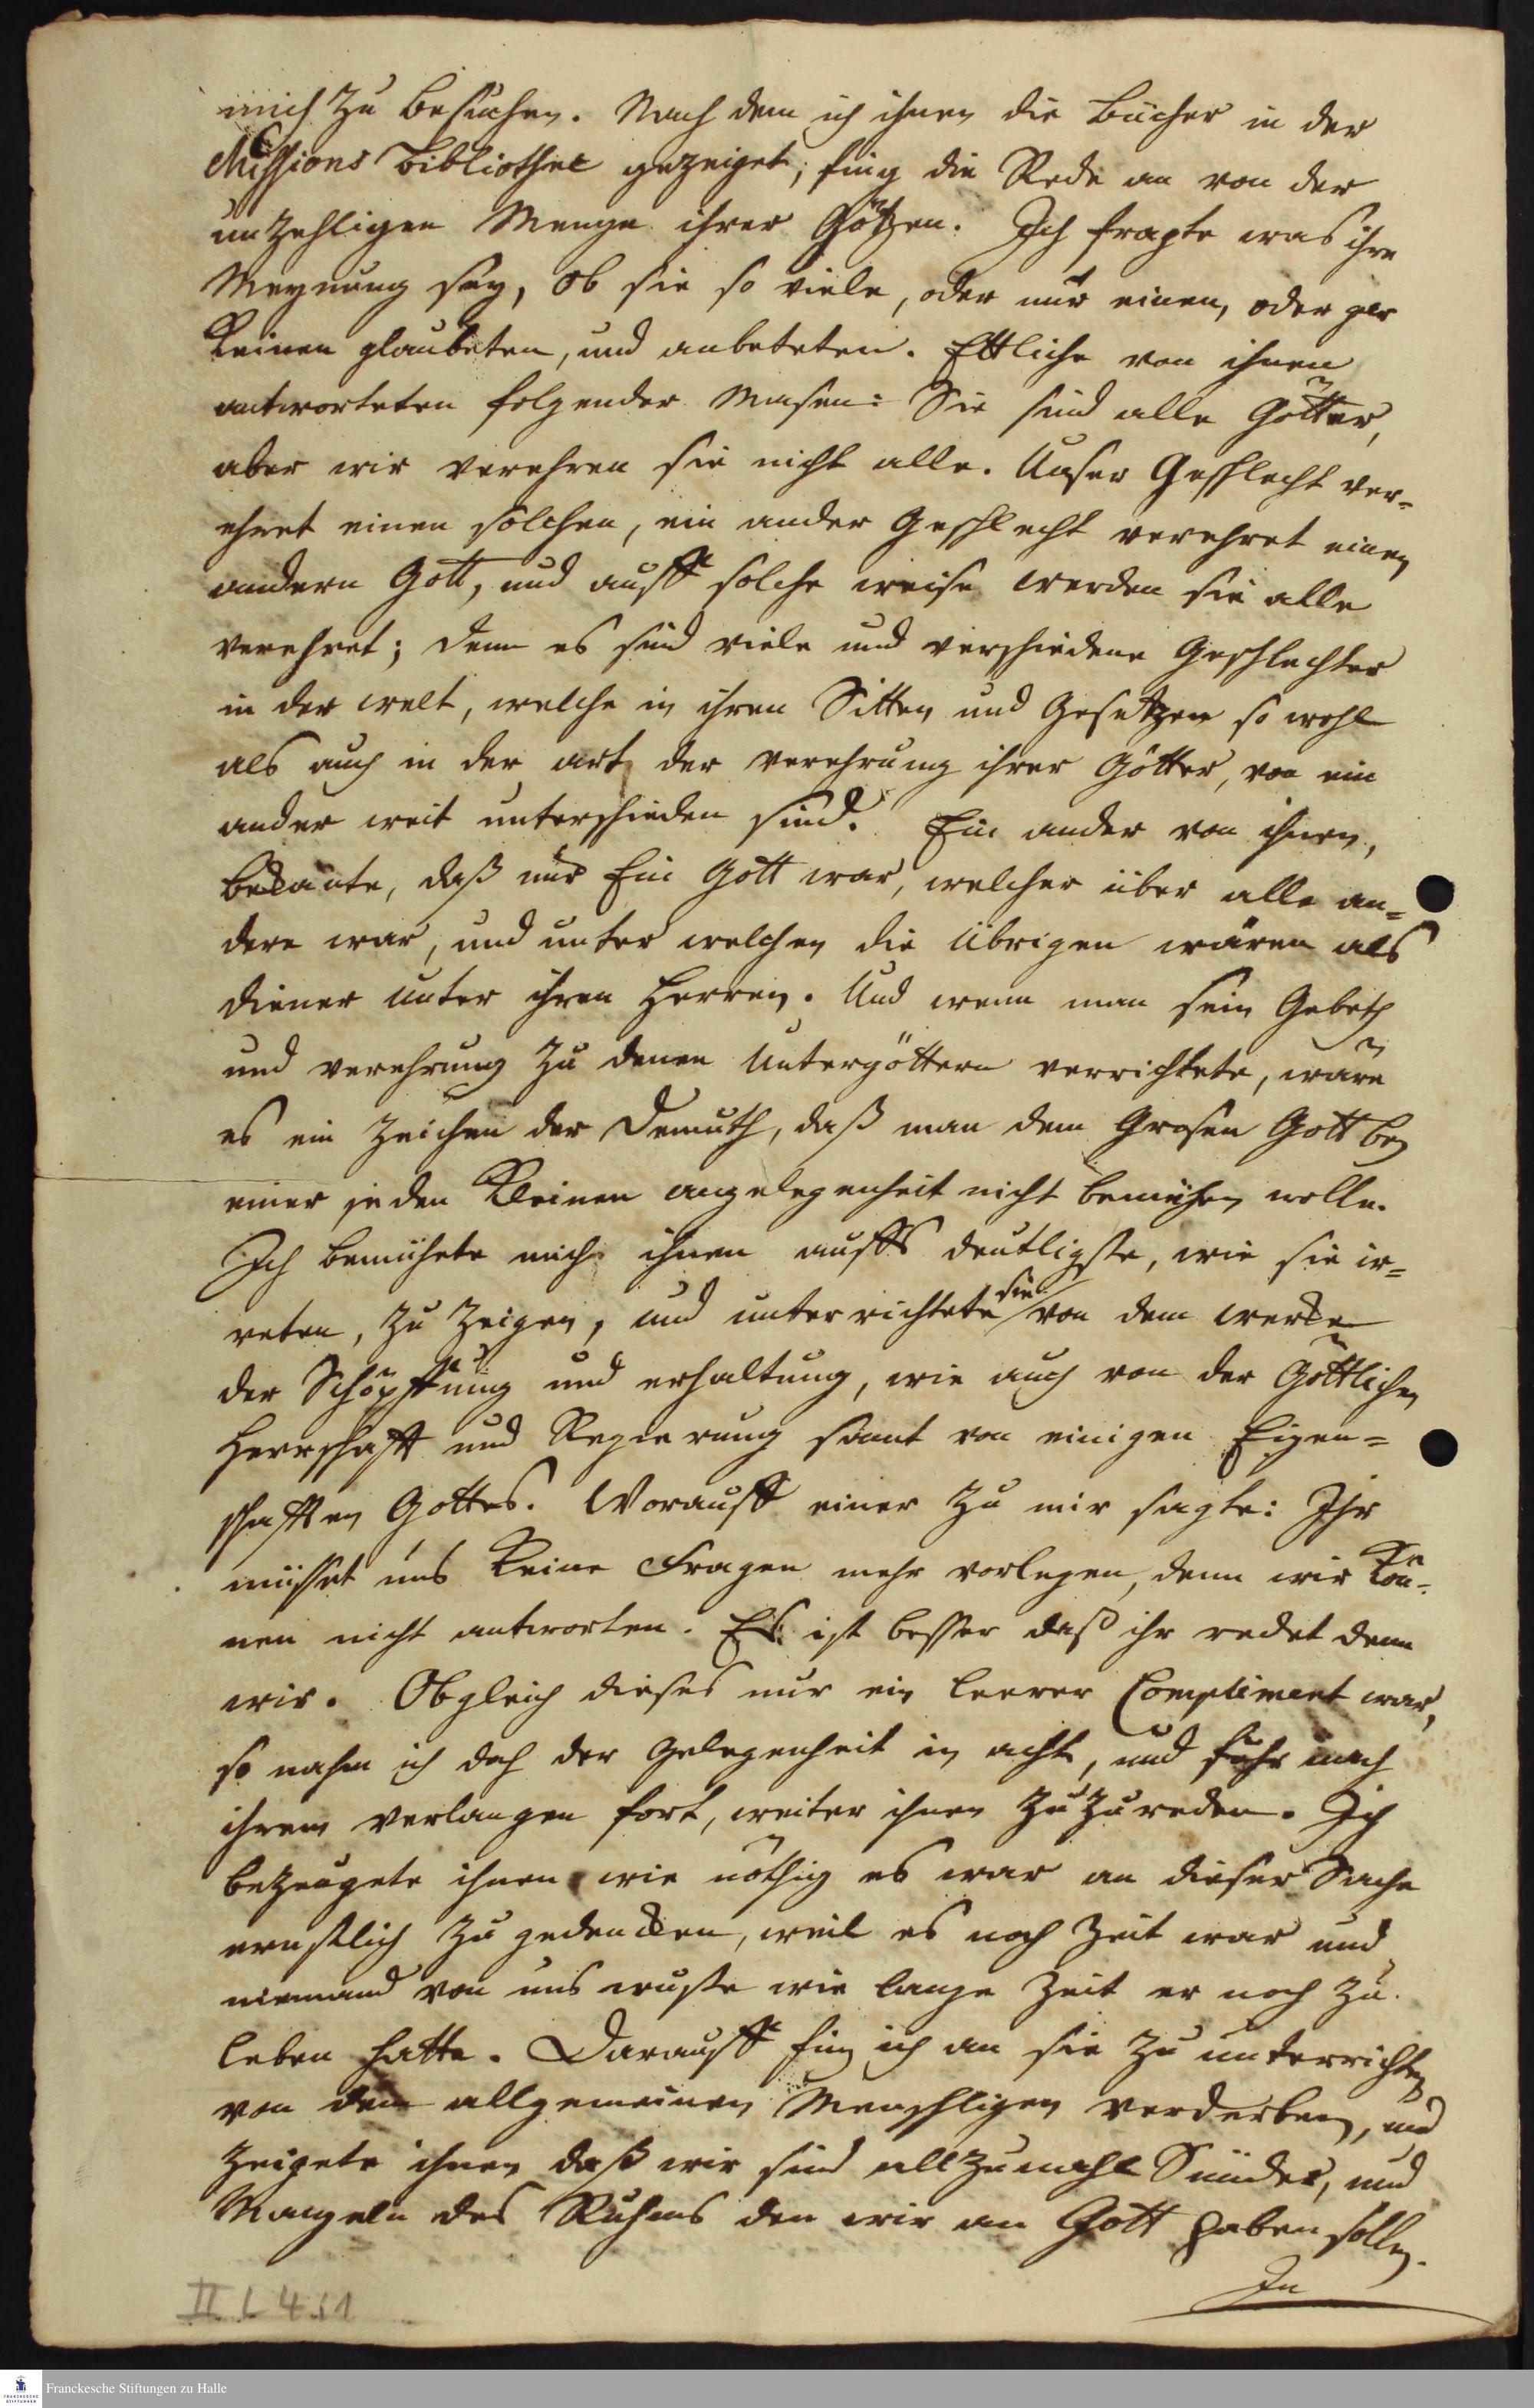 mich zu besuchen. Nach dem ich ihnen die Bücher in der
Missions Bibliothec gezeiget, fing die Rede an von der
unzehligen Menge ihrer Götzen. Ich fragte was ihre
Meynung sey, ob sie so viele, oder nur einen, oder gar
keinen glaubeten, und anbeteten. Ettliche von ihnen
antworteten folgender Masen: Sie sind alle Götter,
aber wir verehren sie nicht alle. Unser Geschlecht ver-
ehret einen solchen, ein ander Geschlecht verehret einen
andern Gott, und auff solche weise werden sie alle
verehret; denn es sind viele und verschiedene Geschlechter
in der welt, welche in ihren Sitten und Gesetzen so wohl
als auch in der art der verehrung ihrer Götter, von ein
ander weit unterschieden sind. Ein ander von ihnen,
bekante, daß nur Ein Gott war, welcher über alle an-
dere war, und unter welchen die Übrigen wären als
diener unter ihren Herren. Und wenn man sein Gebeth
und verehrung zu denen Untergöttern verrichtete, wäre
es ein zeichen der Demuth, daß man dem Grosen Gott bey
einer jeden kleinen angelegenheit nicht bemühen wolle.
Ich bemühete mich ihnen auffs deutligste, wie sie ir-
reten, zu zeigen, und unterrichtete sie von dem wercke
der Schöpffung und erhaltung, wie auch von der Göttlichen
Herrschafft und Regierung samt von einigen Eigen-
schafften Gottes. Worauff einer zu mir sagte: Ihr
müsset uns keine Fragen mehr vorlegen, denn wir kön-
nen nicht antworten. Es ist besser daß ihr redet denn
wir. Obgleich dieses nur ein leerer Compliment war,
so nahm ich doch der gelegenheit in acht, und fuhr nach
ihrem verlangen fort, weiter ihnen zuzureden. Ich
bezeugete ihnen wie nöthig es war an dieser Sache
ernstlich zu gedencken, weil es noch Zeit war und
niemand von uns wuste wie lange Zeit er noch zu
leben hatte. Darauff fing ich an sie zu unterrichten
von dem allgemeinen Menschligen verderben, und
zeigete ihnen daß wir sind allzumahl Sünder, und
Mangeln des Ruhms den wir an Gott haben sollen.
In
II L 4 : 1
Franckesche Stiftungen zu Halle
FRANCKESCHE
STIFTUNGEN